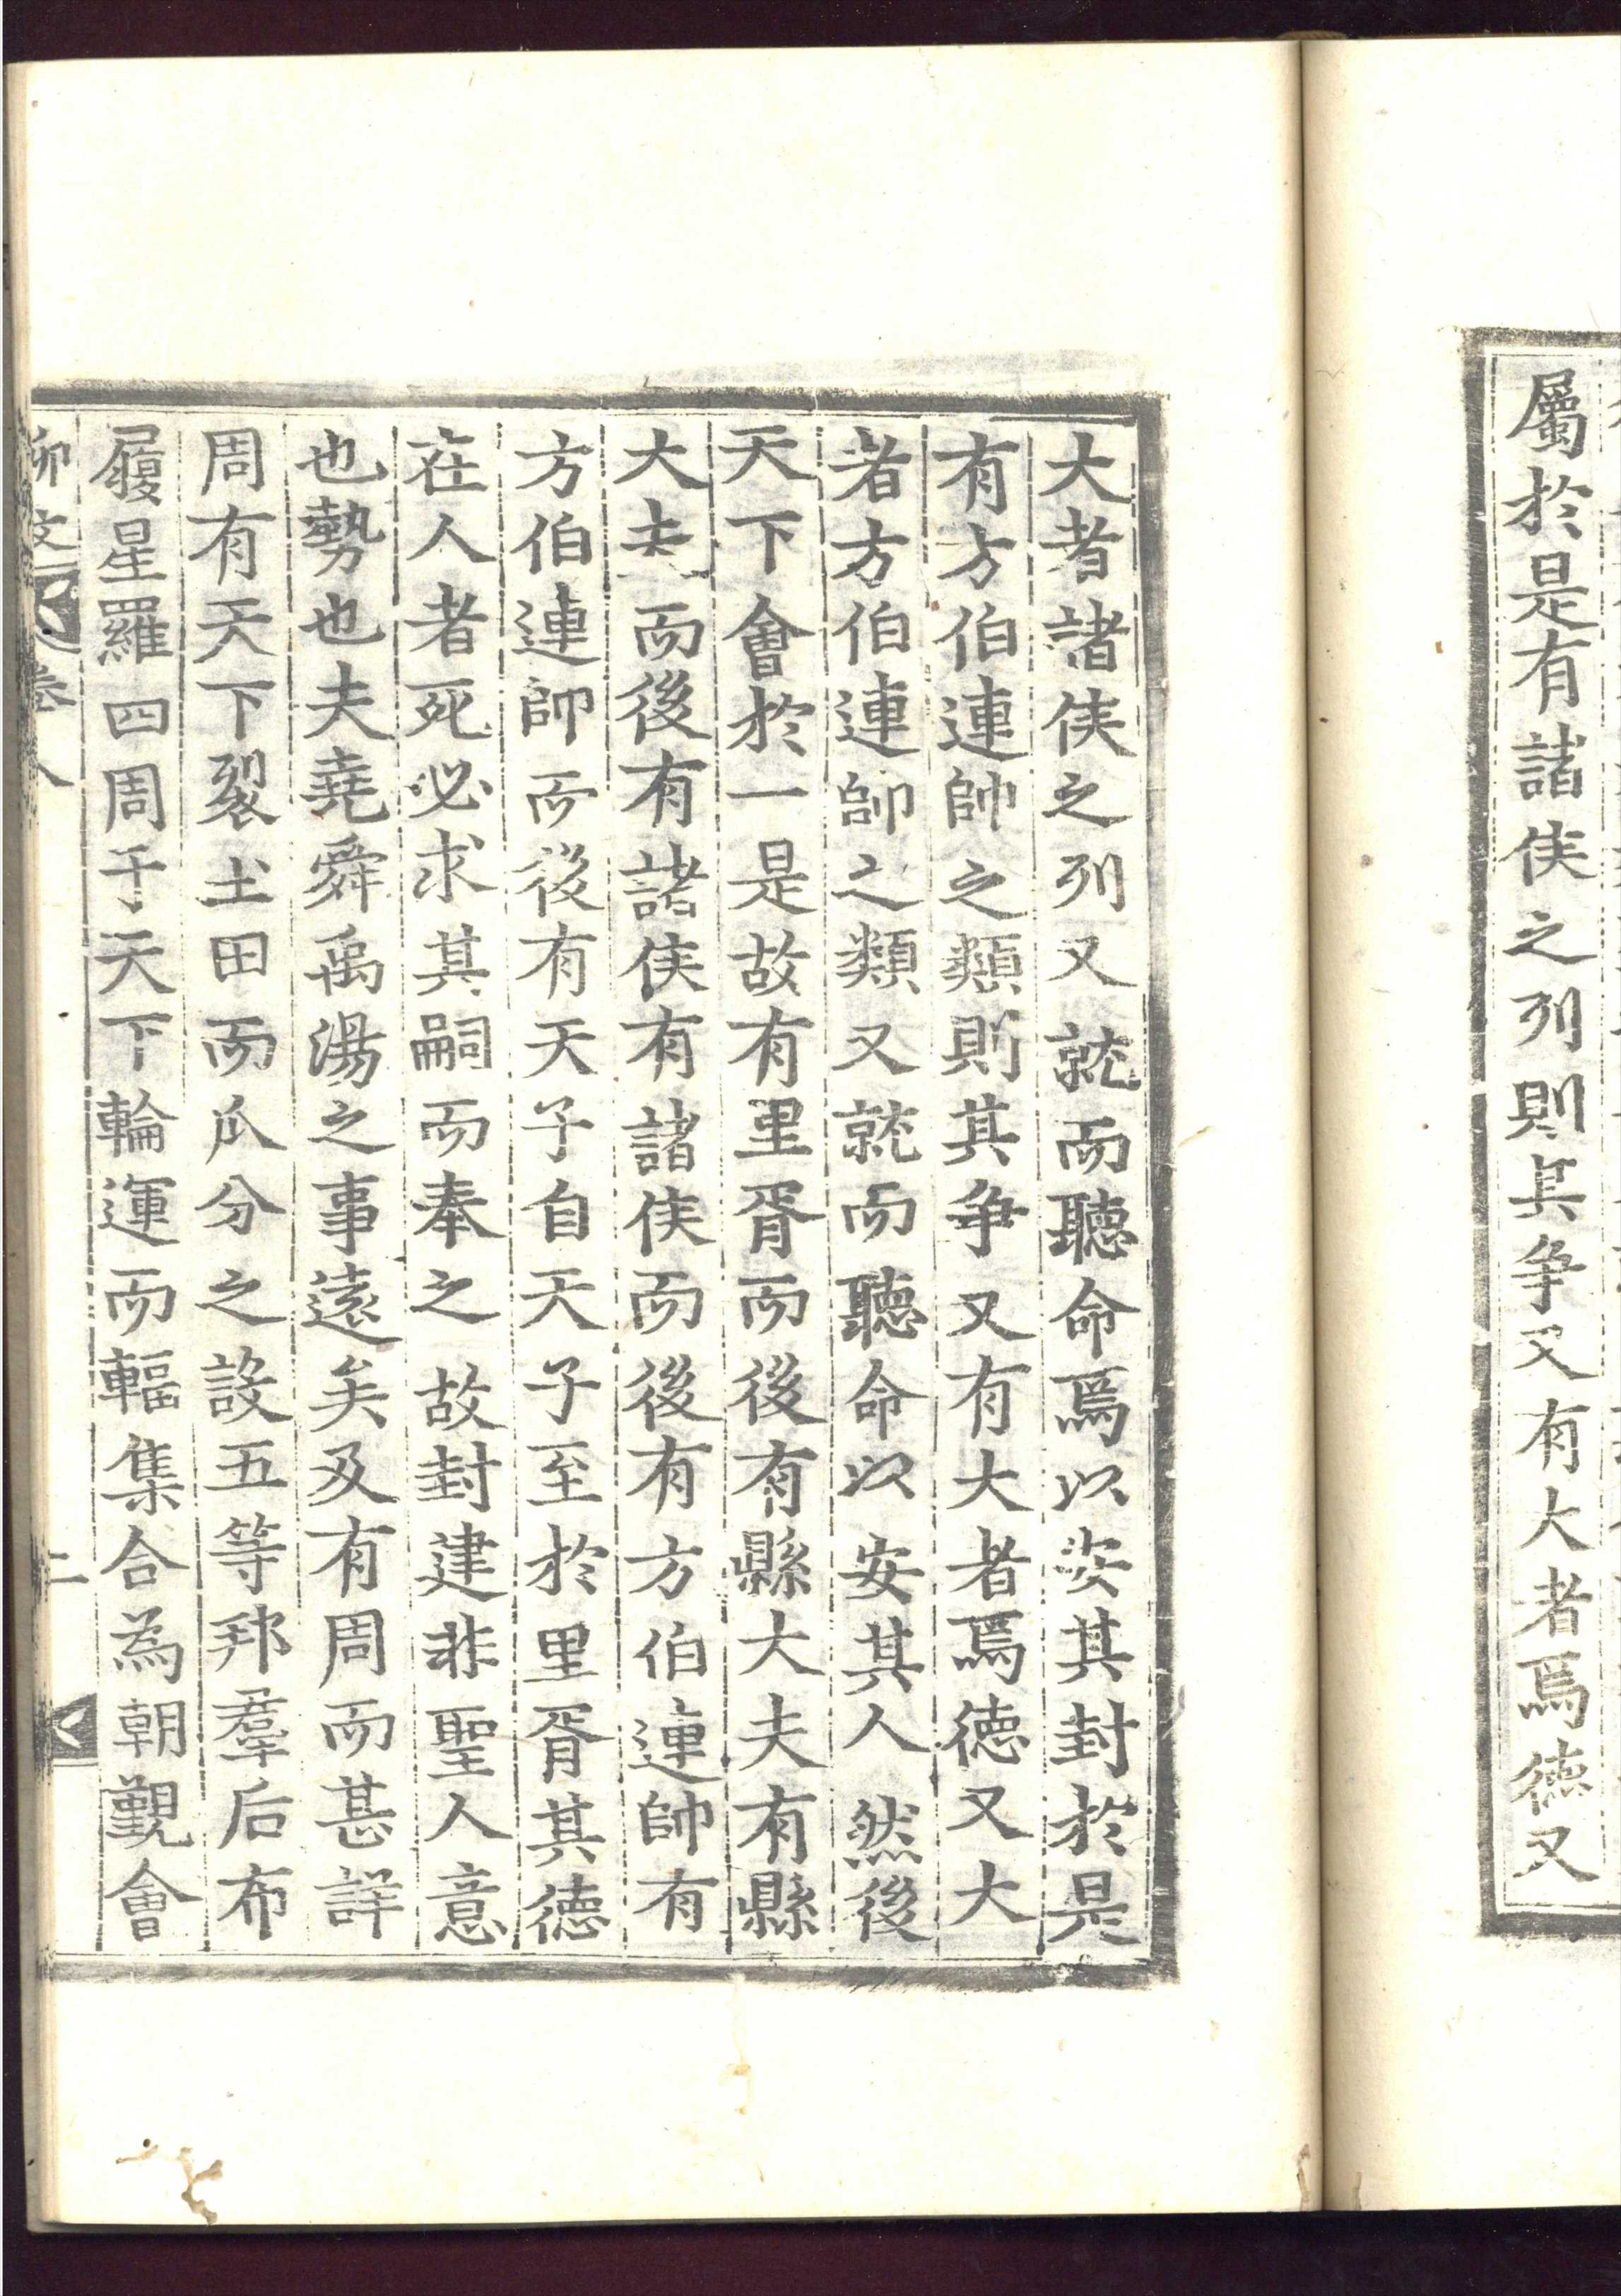 屬於是有諸侯之列則其爭又有大者焉德又
大者諸侯之列又就而聽命焉以安其封於是
有方伯連帥之類則其爭又有大者焉德又大
者方伯連帥之類又就而聽命以安其人然後
天下會於一是故有里胥而後有縣大夫有縣
大夫而後有諸侯有諸侯而後有方伯連帥有
方伯連帥而後有天子自天子至於里胥其德
在人者死必求其嗣而奉之故封建非聖人意
也勢也夫堯舜禹湯之事遠矣及有周而甚詳
周有天下裂土田而瓜分之設五等邦羣后布
履星羅四周于天下輪運而輻集合為朝覲會
柳文 卷 二